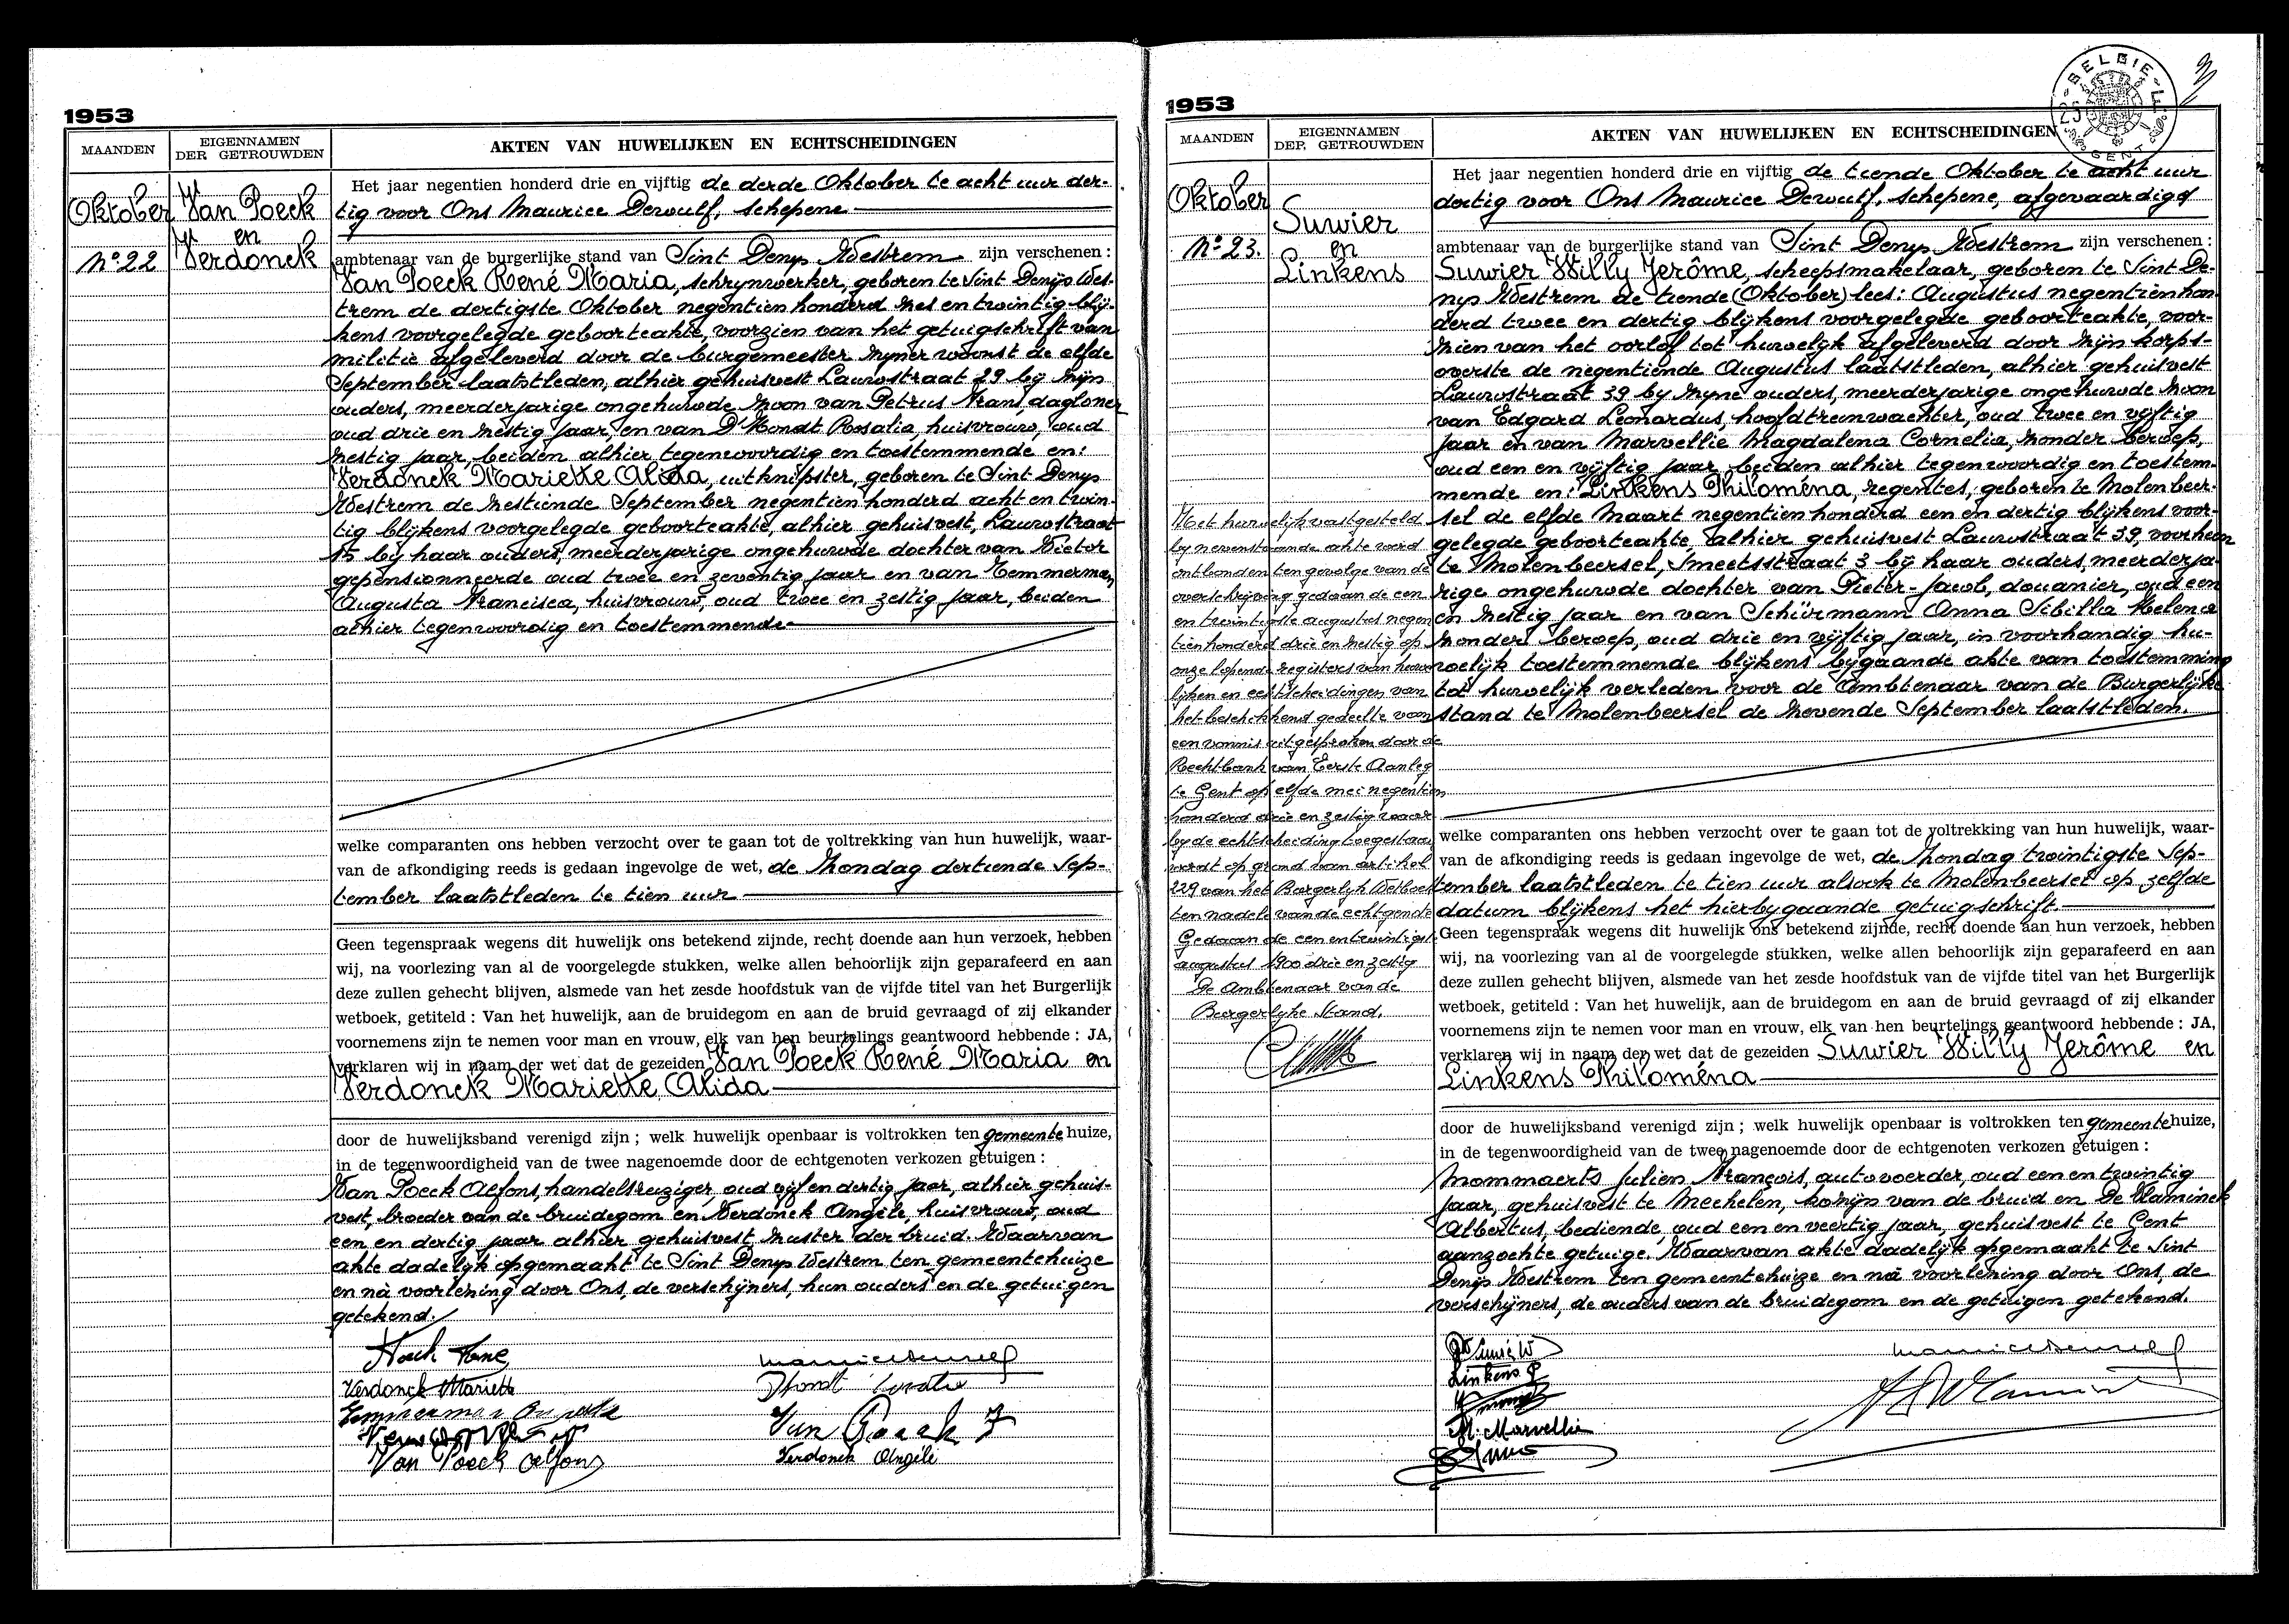 1953
MAANDEN
EIGENNAMEN
DER GETROUWDEN
AKTEN VAN HUWELIJKEN EN ECHTSCHEIDINGEN
Oktober
No 22
Van Poeck
en
Verdonck
Het jaar negentien honderd drie en vijftig de derde Oktober te acht uur der-
tig voor Ons Maurice Dewulf, schepene
ambtenaar van de burgerlijke stand van Sint Denys Westrem zijn verschenen :
Van Poeck René Maria, schrynwerker, geboren te Sint Denijs Wes-
trem de dertigste Oktober negentien honderd zes en twintig blij-
kens voorgelegde geboorteakte, voorzien van het getuigschrift van
militie afgeleverd door de burgemeester zyner woonst de elfde
September laatstleden, alhier gehuisvest Lauwstraat 29 bij zijn
ouders, meerderjarige ongehuwde zoon van Petrus Frans, dagloner
oud drie en zestig jaar, en van D'Hondt Rosalia, huisvrouw, oud
zestig jaar, beiden alhier tegenwoordig en toestemmende en:
Verdonck Mariette Alida, uitknipster, geboren te Sint Denys
Westrem de zestiende September negentien honderd acht en twin-
tig blijkens voorgelegde geboorteakte, alhier gehuisvest, Lauwstraat
15 bij haar ouders, meerderjarige ongehuwde dochter van Victor
gepensionneerde oud twee en zeventig jaar en van Temmerman
Augusta Francisca, huisvrouw, oud twee en zestig jaar, beiden
alhier tegenwoordig en toestemmende
welke comparanten ons hebben verzocht over te gaan tot de voltrekking van hun huwelijk, waar-
van de afkondiging reeds is gedaan ingevolge de wet, de zondag dertiende Sep-
tember laatstleden te tien uur
Geen tegenspraak wegens dit huwelijk ons betekend zijnde, recht doende aan hun verzoek, hebben
wij, na voorlezing van al de voorgelegde stukken, welke allen behoorlijk zijn geparafeerd en aan
deze zullen gehecht blijven, alsmede van het zesde hoofdstuk van de vijfde titel van het Burgerlijk
wetboek, getiteld : Van het huwelijk, aan de bruidegom en aan de bruid gevraagd of zij elkander
voornemens zijn te nemen voor man en vrouw, elk van hen beurtelings geantwoord hebbende : JA,
verklaren wij in naam der wet dat de gezeiden Van Poeck René Maria en
Verdonck Mariette Alida
door de huwelijksband verenigd zijn ; welk huwelijk openbaar is voltrokken ten gemeente huize,
in de tegenwoordigheid van de twee nagenoemde door de echtgenoten verkozen getuigen :
Van Poeck Alfons, handelsreiziger, oud vijf en dertig jaar, alhier gehuis-
vest, broeder van de bruidegom en Verdonck Angèle, huisvrouw, oud
een en dertig jaar alhier gehuisvest, zuster der bruid. Waarvan
akte dadelijk opgemaakt te Sint Denys Westrem ten gemeentehuize
en nà voorlezing door Ons, de verschijners, hun ouders en de getuigen
getekend.
Verdonck Mariette
Van Poeck Alfons
Van Poeck F
Verdonck Angèle
1953
MAANDEN
EIGENNAMEN
DER GETROUWDEN
AKTEN VAN HUWELIJKEN EN ECHTSCHEIDINGEN
BELGIE
GENT
Oktober
No 23.
Suwier
en
Linkens
Het jaar negentien honderd drie en vijftig de tiende Oktober te acht uur
dertig voor Ons Maurice Dewulf, schepene, afgevaardigd
ambtenaar van de burgerlijke stand van Sint Denys Westrem zijn verschenen :
Suwier Willy Jerôme, scheepsmakelaar, geboren te Sint De-
nys Westrem de tiende (Oktober) lees: Augustus negentien hon-
derd twee en dertig blijkens voorgelegde geboorteakte, voor-
zien van het oorlof tot huwelijk afgeleverd door zijn korps-
overste de negentiende Augustus laatstleden, alhier gehuisvest
Lauwstraat 39 by zyne ouders, meerderjarige ongehuwde zoon
van Edgard Leonardus, hoofdtreinwachter, oud twee en vijftig
jaar en van Marvellie Magdalena Cornelia, zonder beroep,
oud een en vijftig jaar beiden alhier tegenwoordig en toestem-
mende en: Linkens Philoména, regentes, geboren te Molenbeer-
sel de elfde Maart negentien honderd een en dertig blijkens voor-
gelegde geboorteakte, alhier gehuisvest Lauwstraat 39, voorheen
te Molenbeersel, Smeetsstraat 3 bij haar ouders, meerderja-
rige ongehuwde dochter van Pieter-Jacob, douanier, oud een
en zestig jaar en van Schürmann Anna Sibilla Helena
zonder beroep, oud drie en vijftig jaar, in voorhandig hu-
welijk toestemmende blijkens bygaande akte van toestemming
tot huwelijk verleden voor de Ambtenaar van de Burgerlijke
stand te Molenbeersel de zevende September laatstleden.
Het huwelijk vastgesteld
by nevenstaande akte werd
ontbonden ten gevolge van de
overschrijving gedaan de een
en twintigste augustus negen
tienhonderd drie en zestig op
onze lopende registers van huwe
lijken en echtscheidingen van
het beschikkend gedeelte van
een vonnis uitgesproken door de
Rechtbank van Eerste Aanleg
te Gent op elfde mei negentien
honderd drie en zestig waar
by de echtscheiding toegestaan
wordt op grond van artikel
229 van het Burgerlyk Wetboek
ten nadele van de echtgenote
Gedaan de een en twintigste
augustus 1900 drie en zestig
De Ambtenaar van de
Burgerlyke Stand,
welke comparanten ons hebben verzocht over te gaan tot de voltrekking van hun huwelijk, waar-
van de afkondiging reeds is gedaan ingevolge de wet, de zondag twintigste Sep-
tember laatstleden te tien uur alsook te Molenbeersel op zelfde
datum blijkens het hierbygaande getuigschrift.
Geen tegenspraak wegens dit huwelijk ons betekend zijnde, recht doende aan hun verzoek, hebben
wij, na voorlezing van al de voorgelegde stukken, welke allen behoorlijk zijn geparafeerd en aan
deze zullen gehecht blijven, alsmede van het zesde hoofdstuk van de vijfde titel van het Burgerlijk
wetboek, getiteld : Van het huwelijk, aan de bruidegom en aan de bruid gevraagd of zij elkander
voornemens zijn te nemen voor man en vrouw, elk van hen beurtelings geantwoord hebbende : JA,
verklaren wij in naam der wet dat de gezeiden Suwier Willy Jerôme en
Linkens Philoména
door de huwelijksband verenigd zijn ; welk huwelijk openbaar is voltrokken ten gemeente huize,
in de tegenwoordigheid van de twee nagenoemde door de echtgenoten verkozen getuigen :
Mommaerts Julien François, autovoerder, oud een en twintig
jaar, gehuisvest te Mechelen, kozijn van de bruid en De Vlaminck
Albertus, bediende, oud een en veertig jaar, gehuisvest te Gent
aanzochte getuige. Waarvan akte dadelijk opgemaakt te Sint
Denijs Westrem ten gemeentehuize en nà voorlezing door Ons, de
verschijners, de ouders van de bruidegom en de getuigen getekend.
Linkens P
M. Marvellie